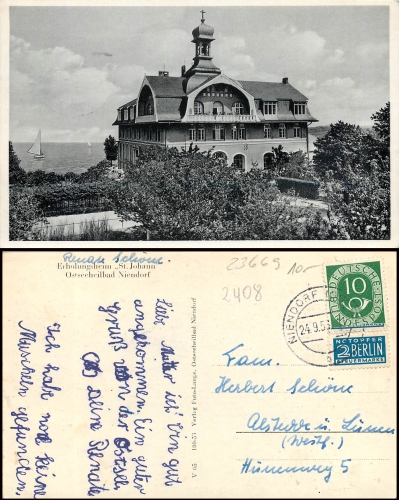 Renate Schöne.
Erholungsheim „St. Johann"
Ostseeheilbad Niendorf
23669 10.-
2408
Liebe Mutter ich bin gut
angekommen. Ein guter
gruß von der Ostsee
Deine Renate
Ich hab noch keine
Muscheln gefunden.
V 05 100/53 Verlag Foto-Lange, Ostseeheilbad Niendorf
NIENDORF
24.9.53
DEUTSCHE BUNDESPOST
10
NOTOPFER
2 BERLIN
STEUERMARKE
Fam.
Herbert Schöne
Alstedde ü. Lünen
(Westf.)
Hünenweg 5